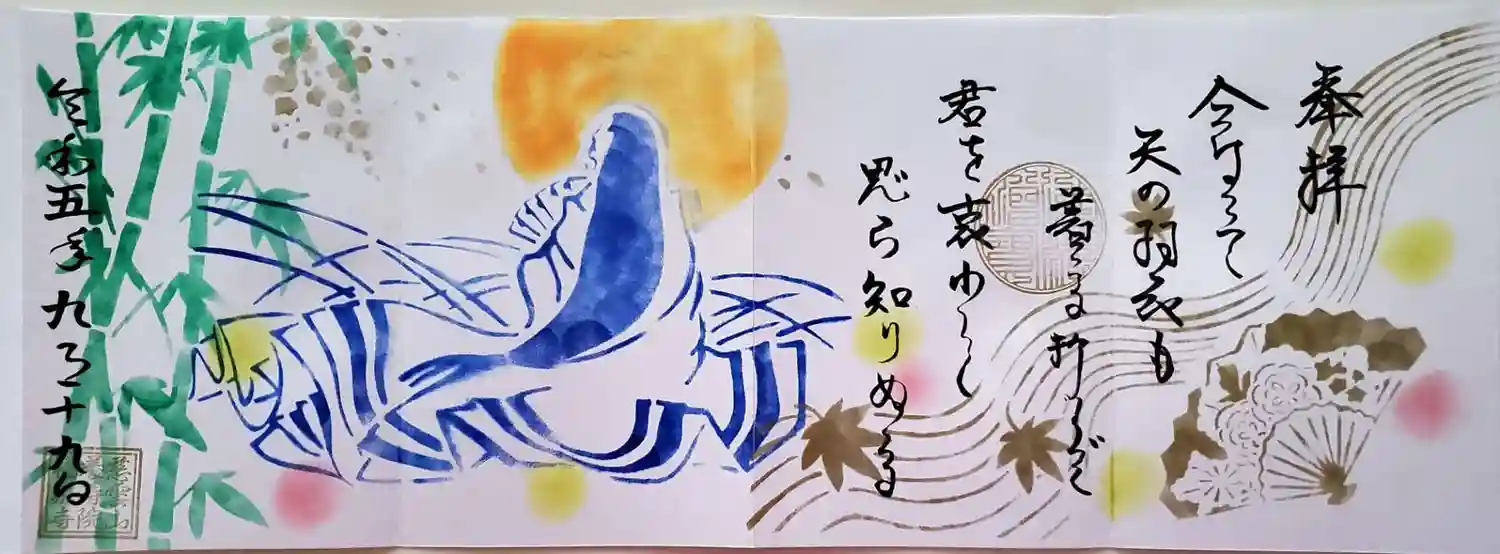 奉拝
今はとて
天の羽衣も
着る折りぞ
君を哀れと
思ひ知りぬる
令和五年九月十九日